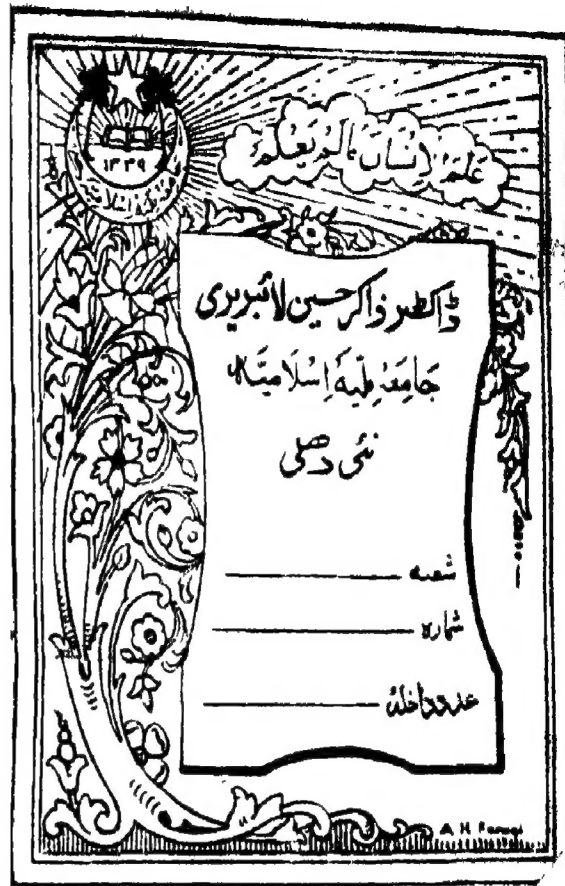 ۱۳۳۹
عَلَّمَ الْاِنْسَانَ مَالَمْ يَعْلَمْ
ڈاکٹر ذاکر حسین لائبریری
جامعہ ملیہ اسلامیہ
نئی دھلی
شعبہ
شمارہ
عدد داخلہ
A. H. Faruqi